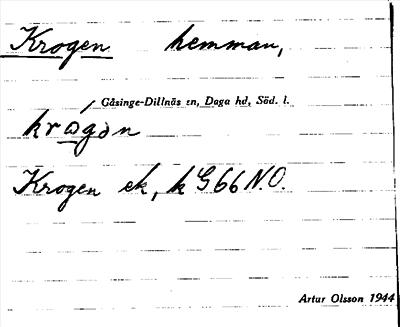 Krogen hemman,
Gåsinge-Dillnäs sn, Daga hd, Söd. l.
krɷ́gən
Krogen ek, k G 66 N.O.
Artur Olsson 1944